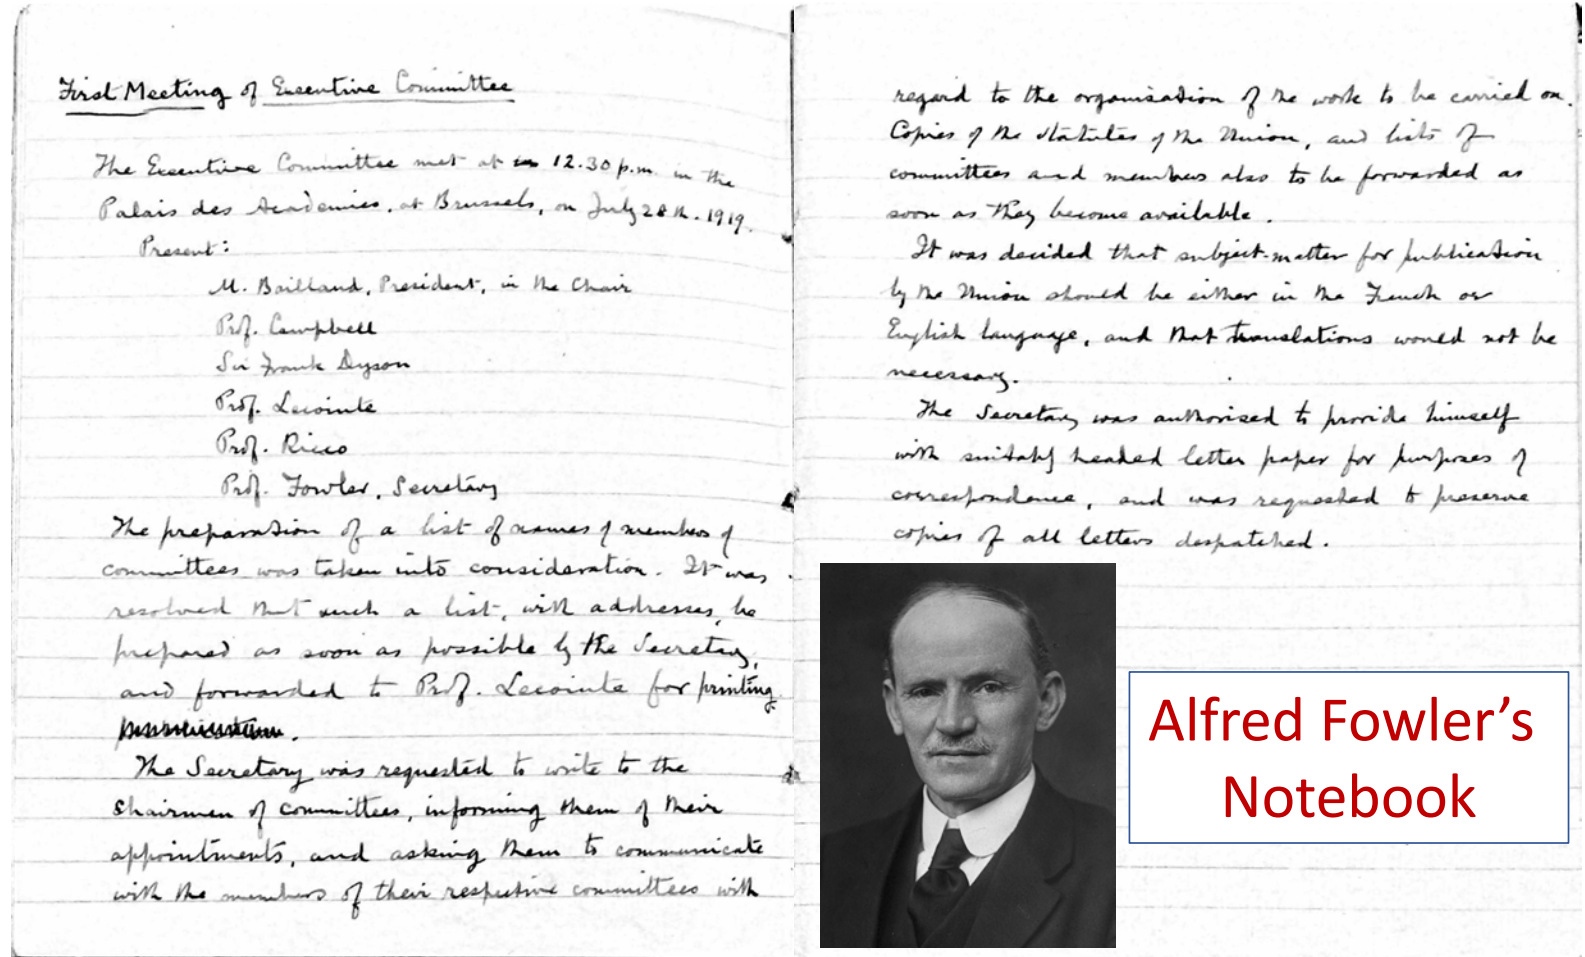 First Meeting of Executive Committee
The Executive Committee met at 12.30 p.m. in the
Palais des Academies, at Brussels, on July 28th. 1919.
Present:
M. Baillaud, President, in the Chair
Prof. Campbell
Sir Frank Dyson
Prof. Lecointe
Prof. Ricco
Prof. Fowler, Secretary
The preparation of a list of names of members of
committees was taken into consideration. It was
resolved that such a list, with addresses, be
prepared as soon as possible by the Secretary,
and forwarded to Prof. Lecointe for printing
.
The Secretary was requested to write to the
chairmen of committees, informing them of their
appointments, and asking them to communicate
with the members of their respective committees with
regard to the organisation of the work to be carried on.
Copies of the statutes of the Union, and lists of
committees and members also to be forwarded as
soon as they become available.
It was decided that subject-matter for publication
by the Union should be either in the French or
English language, and that translations would not be
necessary.
The Secretary was authorised to provide himself
with suitably headed letter paper for purposes of
correspondence, and was requested to preserve
copies of all letters despatched.
Alfred Fowler's
Notebook